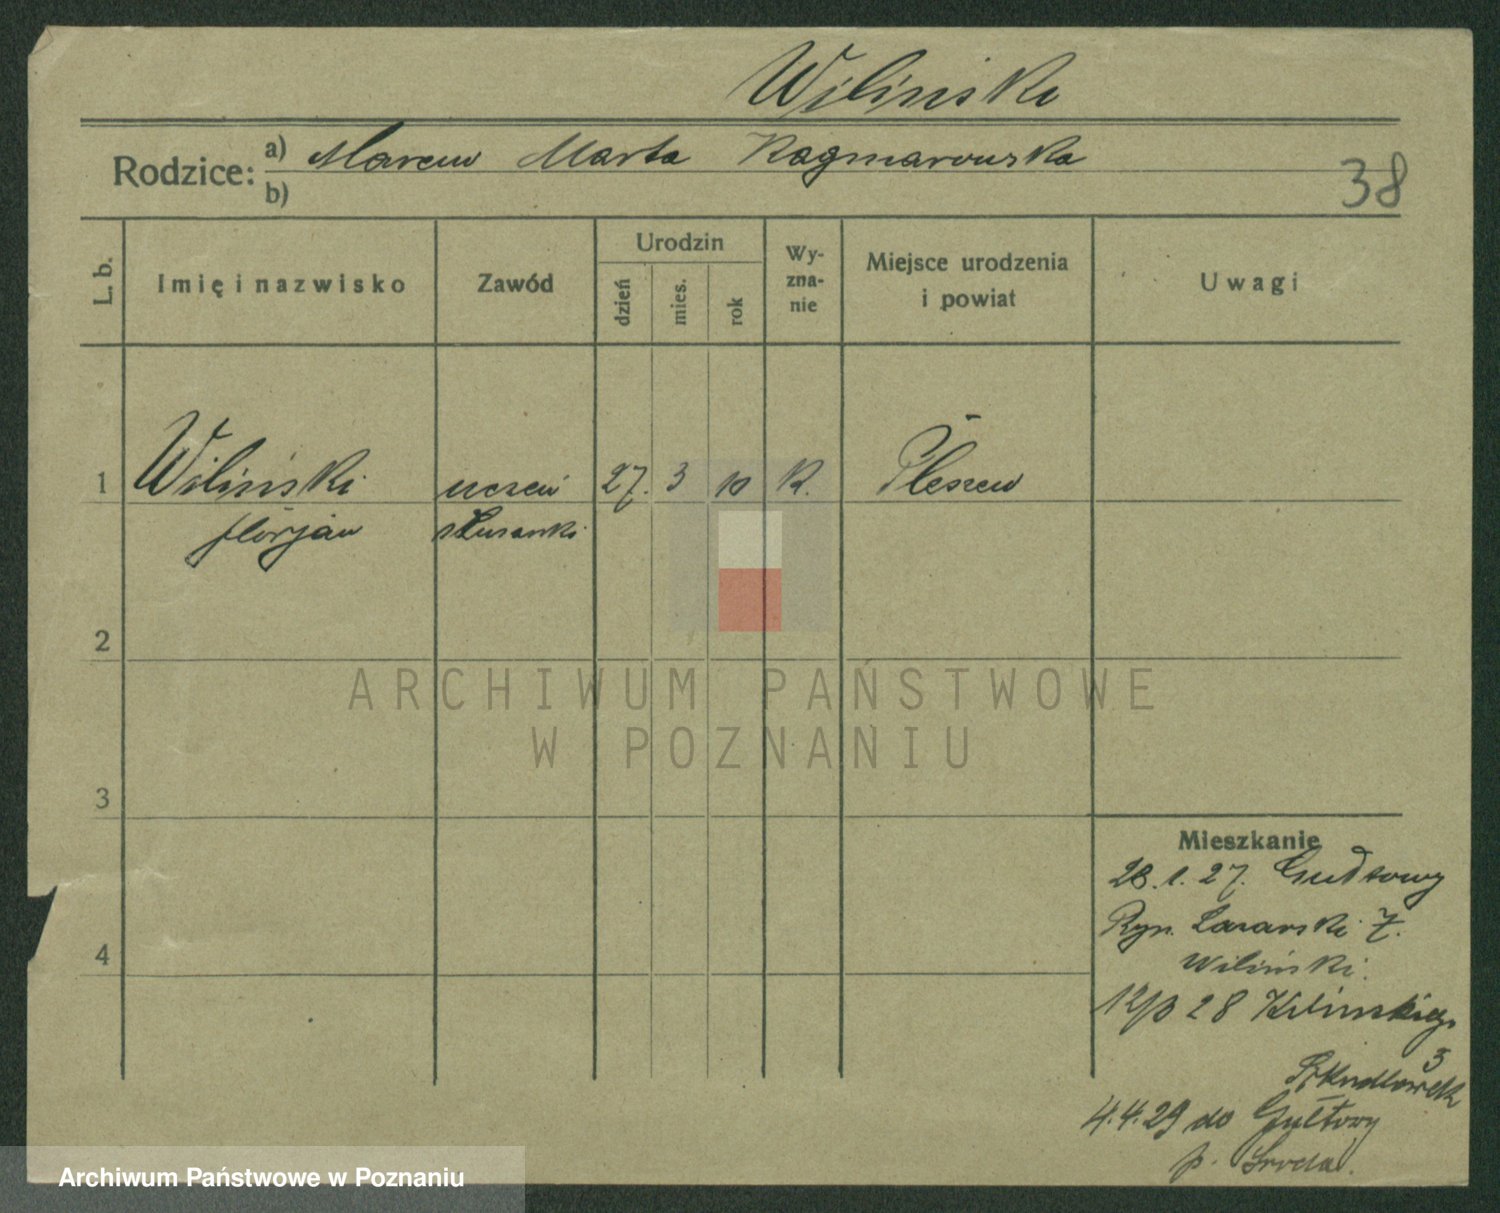 Wiliński
Rodzice: a) Marcin Marta Kaczmarowska
b)
38
L. b.
Imię i nazwisko
Zawód
Urodzin
dzień
mies.
rok
Wy-
zna-
nie
Miejsce urodzenia
i powiat
Uwagi
1 Wiliński uczeń 27. 3 10 K. Pleszew
florjan ślusarski
2
3
4
Mieszkanie
28.1.27. Gułtowy
Ryn. Lazarski 7.
Wiliński.
28 Kilińskiego
3
4.4.29 do Gułtowy
p. Środa.
ARCHIWUM PAŃSTWOWE
W POZNANIU
Archiwum Państwowe w Poznaniu